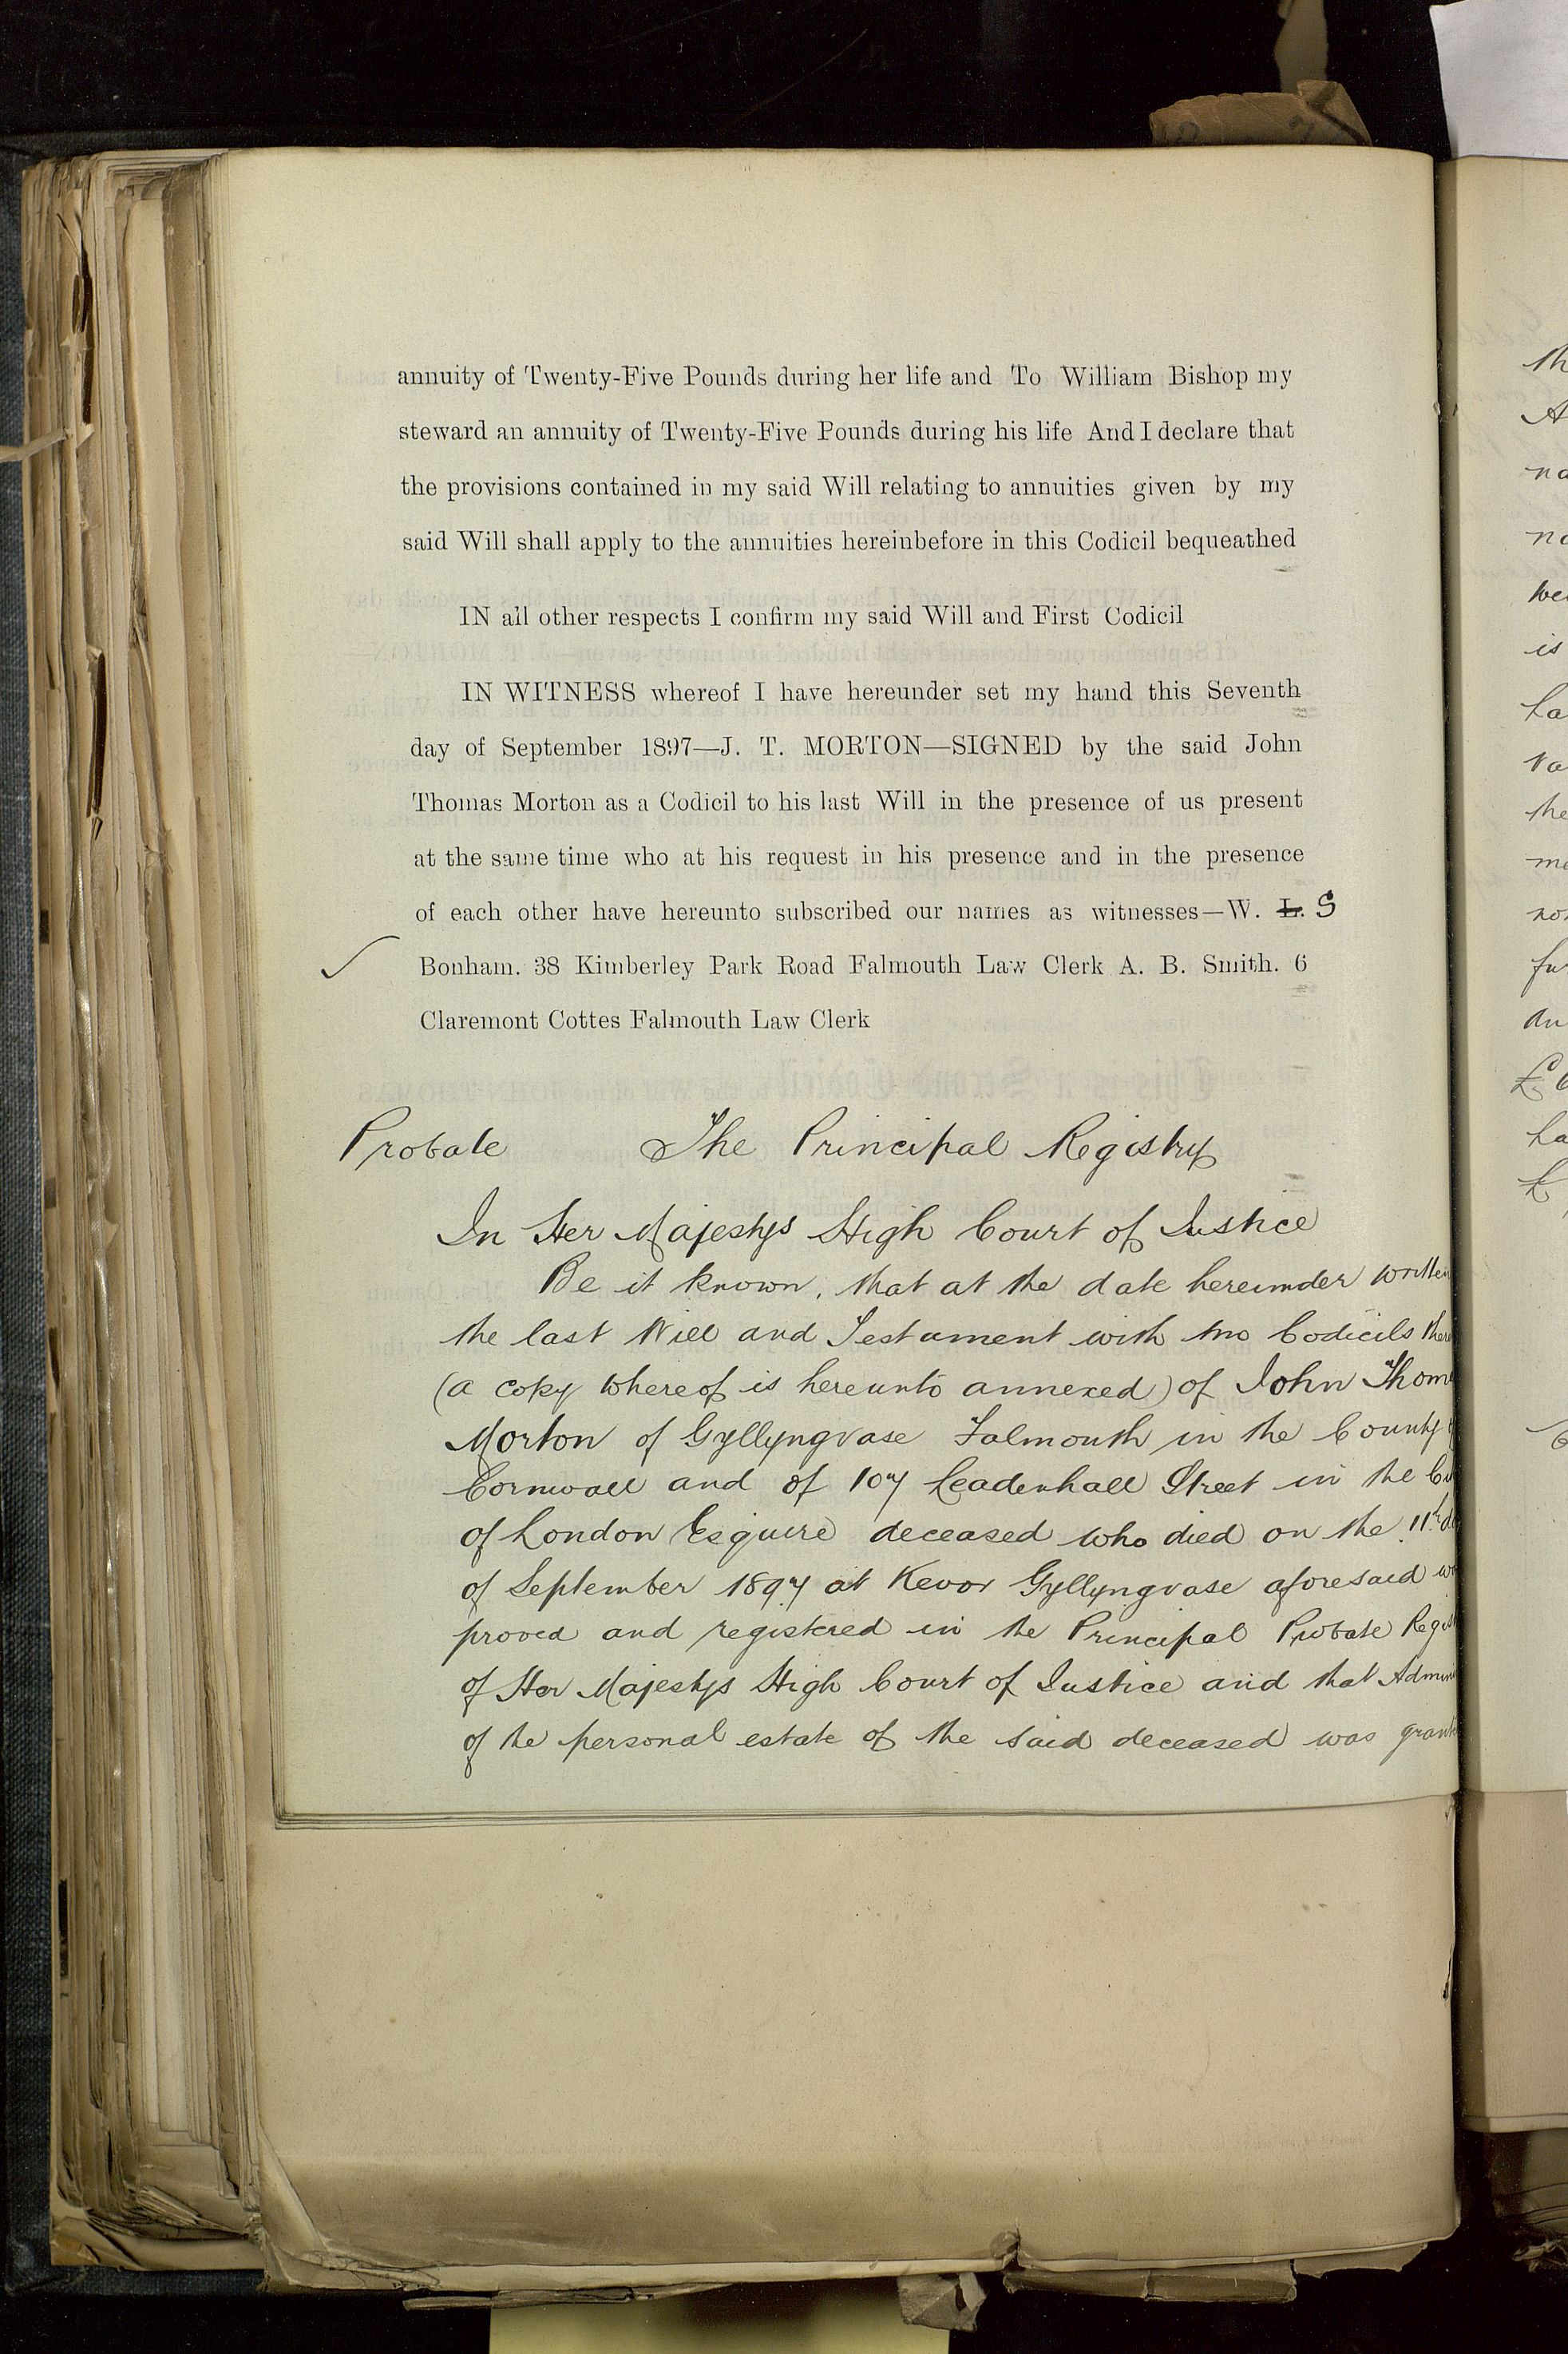 annuity of Twenty-Five Pounds during her life and To William Bishop my
steward an annuity of Twenty-Five Pounds during his life And I declare that
the provisions contained in my said Will relating to annuities given by my
said Will shall apply to the annuities hereinbefore in this Codicil bequeathed
IN all other respects I confirm my said Will and First Codicil
IN WITNESS whereof I have hereunder set my hand this Seventh
day of September 1897—J. T. MORTON—SIGNED by the said John
Thomas Morton as a Codicil to his last Will in the presence of us present
at the same time who at his request in his presence and in the presence
of each other have hereunto subscribed our names as witnesses—W. L. S
Bonham. 38 Kimberley Park Road Falmouth Law Clerk A. B. Smith. 6
Claremont Cottes Falmouth Law Clerk
Probate The Principal Registry
In Her Majestys High Court of Justice
Be it known, that at the date hereunder written
the last Will and Testament with two Codicils
(a copy whereof is hereunto annexed) of John Thom
Morton of Gyllyngvase Falmouth in the County
Cornwall and of 107 Leadenhall Street in the
of London Esquire deceased who died on the 11th
of September 1897 at Kevor Gyllyngvase aforesaid
proved and registered in the Principal Probate Regis
of Her Majestys High Court of Justice and that Admini
of the personal estate of the said deceased was grant